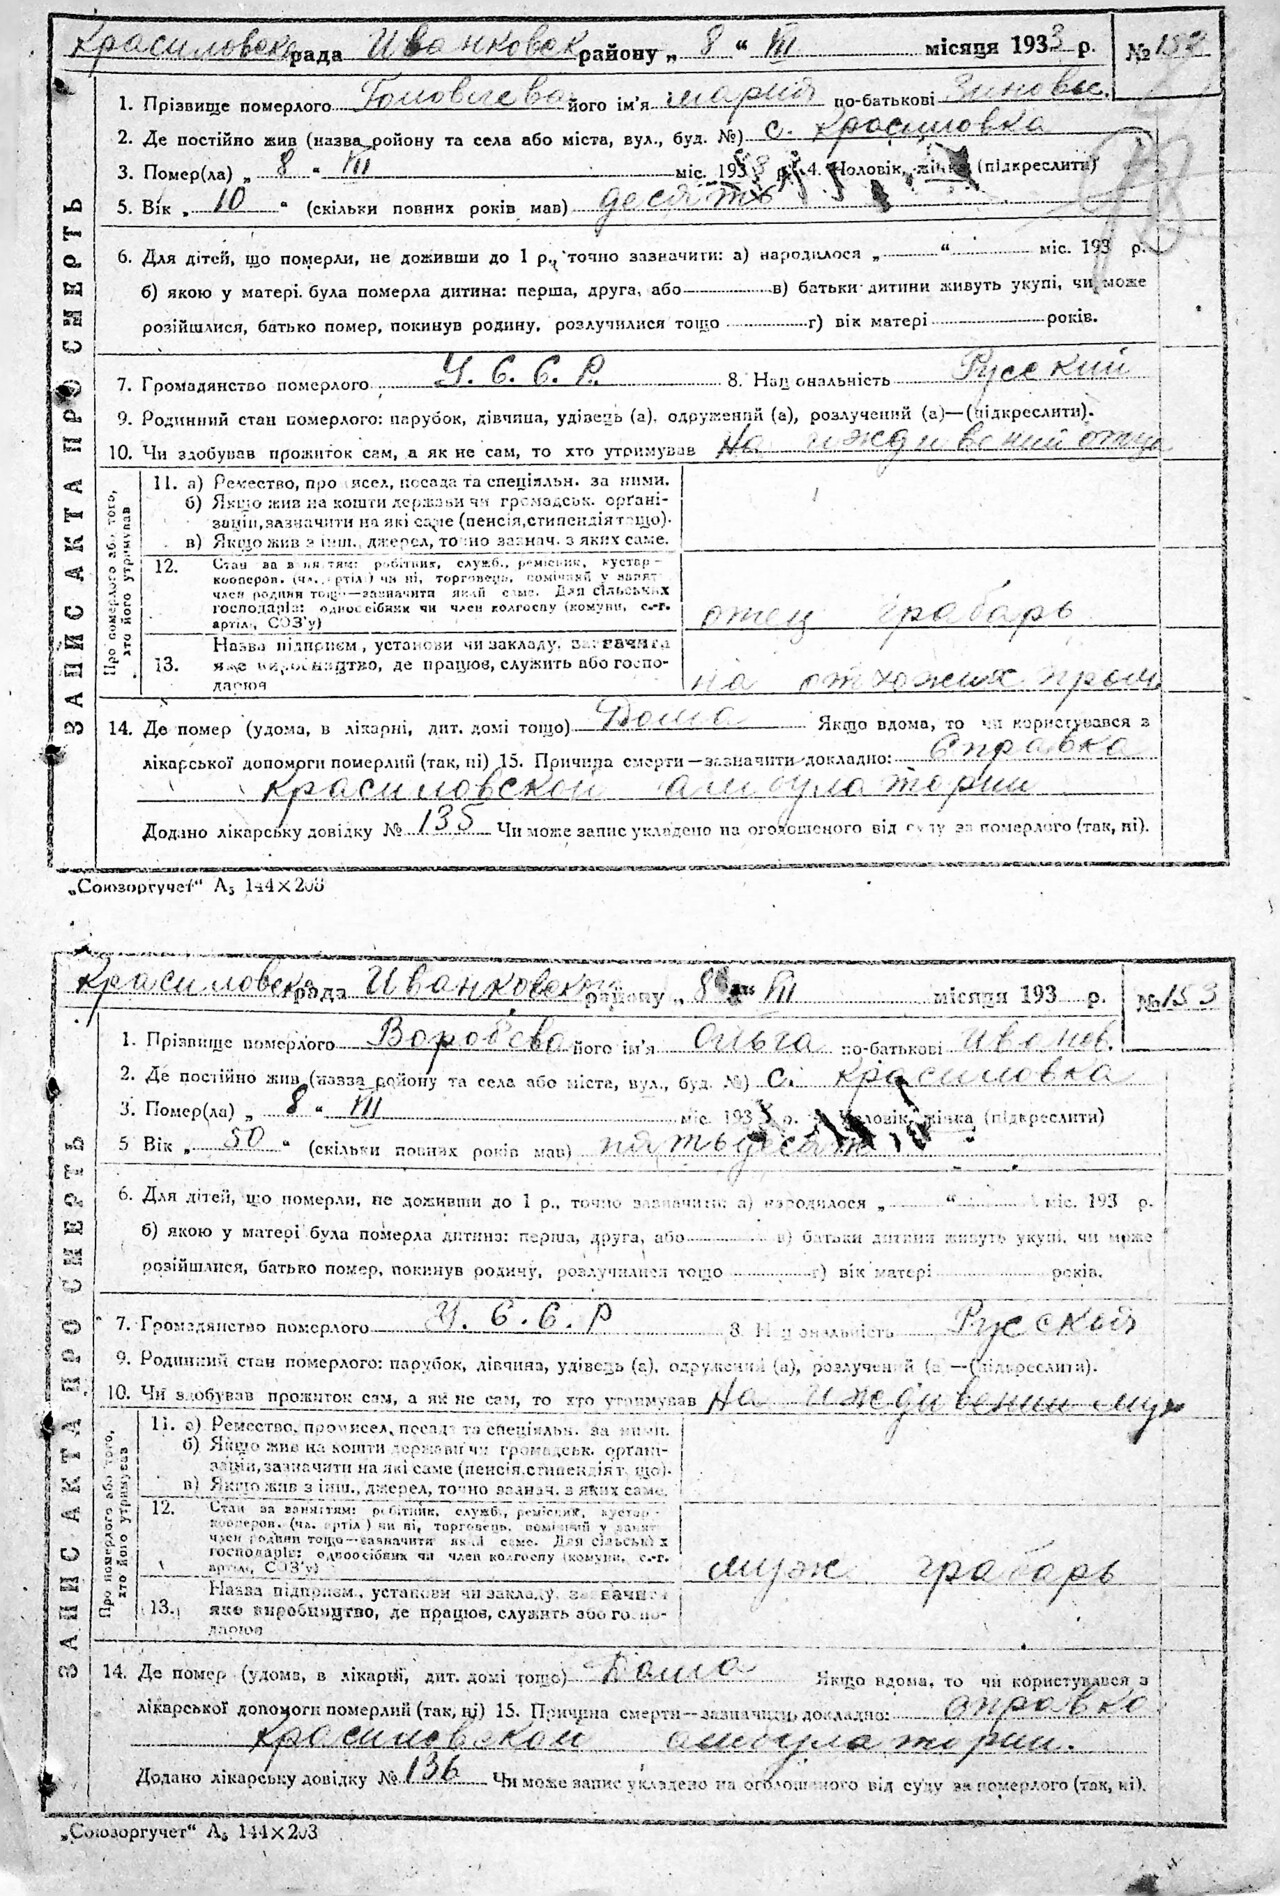 Красиловска рада Иванковск району „ 8 “ VIII місяця 1933 р. № 152
1. Прізвище померлого його ім'я Мария по-батькові Зиновьев.
2. Де постійно жив (назва ройону та села або міста, вул., буд. №) с. Красиловка
3. Помер(ла) „ 8 “ VIII міс. 1933 р. 4. Чоловік, жінка (підкреслити)
5. Вік „ 10 “ (скільки повних років мав) десять
6. Для дітей, що померли, не доживши до 1 р., точно зазначити: а) народилося „ “ міс. 193 р.
б) якою у матері була померла дитина: перша, друга, або в) батьки дитини живуть укупі, чи може
розійшлися, батько помер, покинув родину, розлучилися тощо г) вік матері років.
7. Громадянство померлого У. С. С. Р. 8. Національність Русский
9. Родинний стан померлого: парубок, дівчина, удівець (а), одружений (а), розлучений (а)—(підкреслити).
10. Чи здобував прожиток сам, а як не сам, то хто утримував На иждивений отца
ЗАПИС АКТА ПРО СМЕРТЬ
Про померлого або того, хто його утримував
11. а) Ремество, промисел, посада та спеціяльн. за ними.
б) Якщо жив на кошти держави чи громадськ. організації, зазначити на які саме (пенсія, стипендія тощо).
в) Якщо жив з інш. джерел, точно зазнач. з яких саме.
12. Стан за заняттям: робітник, служб., ремісник, кустар-
кооперов. (чл. артілі) чи ні, торговець, помічний у занят
член родини тощо—зазначити який саме. Для сільських
господарів: одноосібник чи член колгоспу (комуни, с.-г.
артілі, СОЗ'у)
отец грабарь
13. Назва підприєм., установи чи закладу, зазначити
яке виробництво, де працює, служить або госпо-
дарює
на отхожих пром.
14. Де помер (удома, в лікарні, дит. домі тощо) Дома Якщо вдома, то чи користувався з
лікарської допомоги померлий (так, ні) 15. Причина смерти—зазначити докладно: Справка
Красиловской амбулатории
Додано лікарську довідку № 135 Чи може запис укладено на оголошеного від суду за померлого (так, ні).
„Союзоргучет“ А5 144×203
Красиловска рада Иванковск району „ 8 “ VIII місяця 193 р. № 153
1. Прізвище померлого Воробева його ім'я Ольга по-батькові Иванов.
2. Де постійно жив (назва ройону та села або міста, вул., буд. №) с. Красиловка
3. Помер(ла) „ 8 “ VIII міс. 193 р. Чоловік, жінка (підкреслити)
5 Вік „ 50 “ (скільки повних років мав) пятьдесят
6. Для дітей, що померли, не доживши до 1 р., точно зазначити: а) народилося „ “ міс. 193 р.
б) якою у матері була померла дитина: перша, друга, або в) батьки дитини живуть укупі, чи може
розійшлися, батько помер, покинув родину, розлучилися тощо г) вік матері років.
7. Громадянство померлого У. С. С. Р 8. Національність Русской
9. Родинний стан померлого: парубок, дівчина, удівець (а), одружений (а), розлучений (а)—(підкреслити).
10. Чи здобував прожиток сам, а як не сам, то хто утримував На иждивении муж
ЗАПИС АКТА ПРО СМЕРТЬ
Про померлого або того, хто його утримував
11. а) Ремество, промисел, посада та спеціяльн. за ними.
б) Якщо жив на кошти держави чи громадськ. організації, зазначити на які саме (пенсія, стипендія тощо).
в) Якщо жив з інш., джерел, точно зазнач. з яких саме.
12. Стан за заняттям: робітник, служб., ремісник, кустар-
кооперов. (чл. артілі) чи ні, торговець, помічний у занят
член родини тощо—зазначити який саме. Для сільських
господарів: одноосібник чи член колгоспу (комуни, с.-г.
артілі, СОЗ'у)
муж грабарь
13. Назва підприєм., установи чи закладу, зазначити
яке виробництво, де працює, служить або госпо-
дарює
14. Де помер (удома, в лікарні, дит. домі тощо) Дома Якщо вдома, то чи користувався з
лікарської допомоги померлий (так, ні) 15. Причина смерти—зазначить докладно: справка
Красиловской амбулатории.
Додано лікарську довідку № 136 Чи може запис укладено на оголошеного від суду за померлого (так, ні).
„Союзоргучет“ А5 144×203